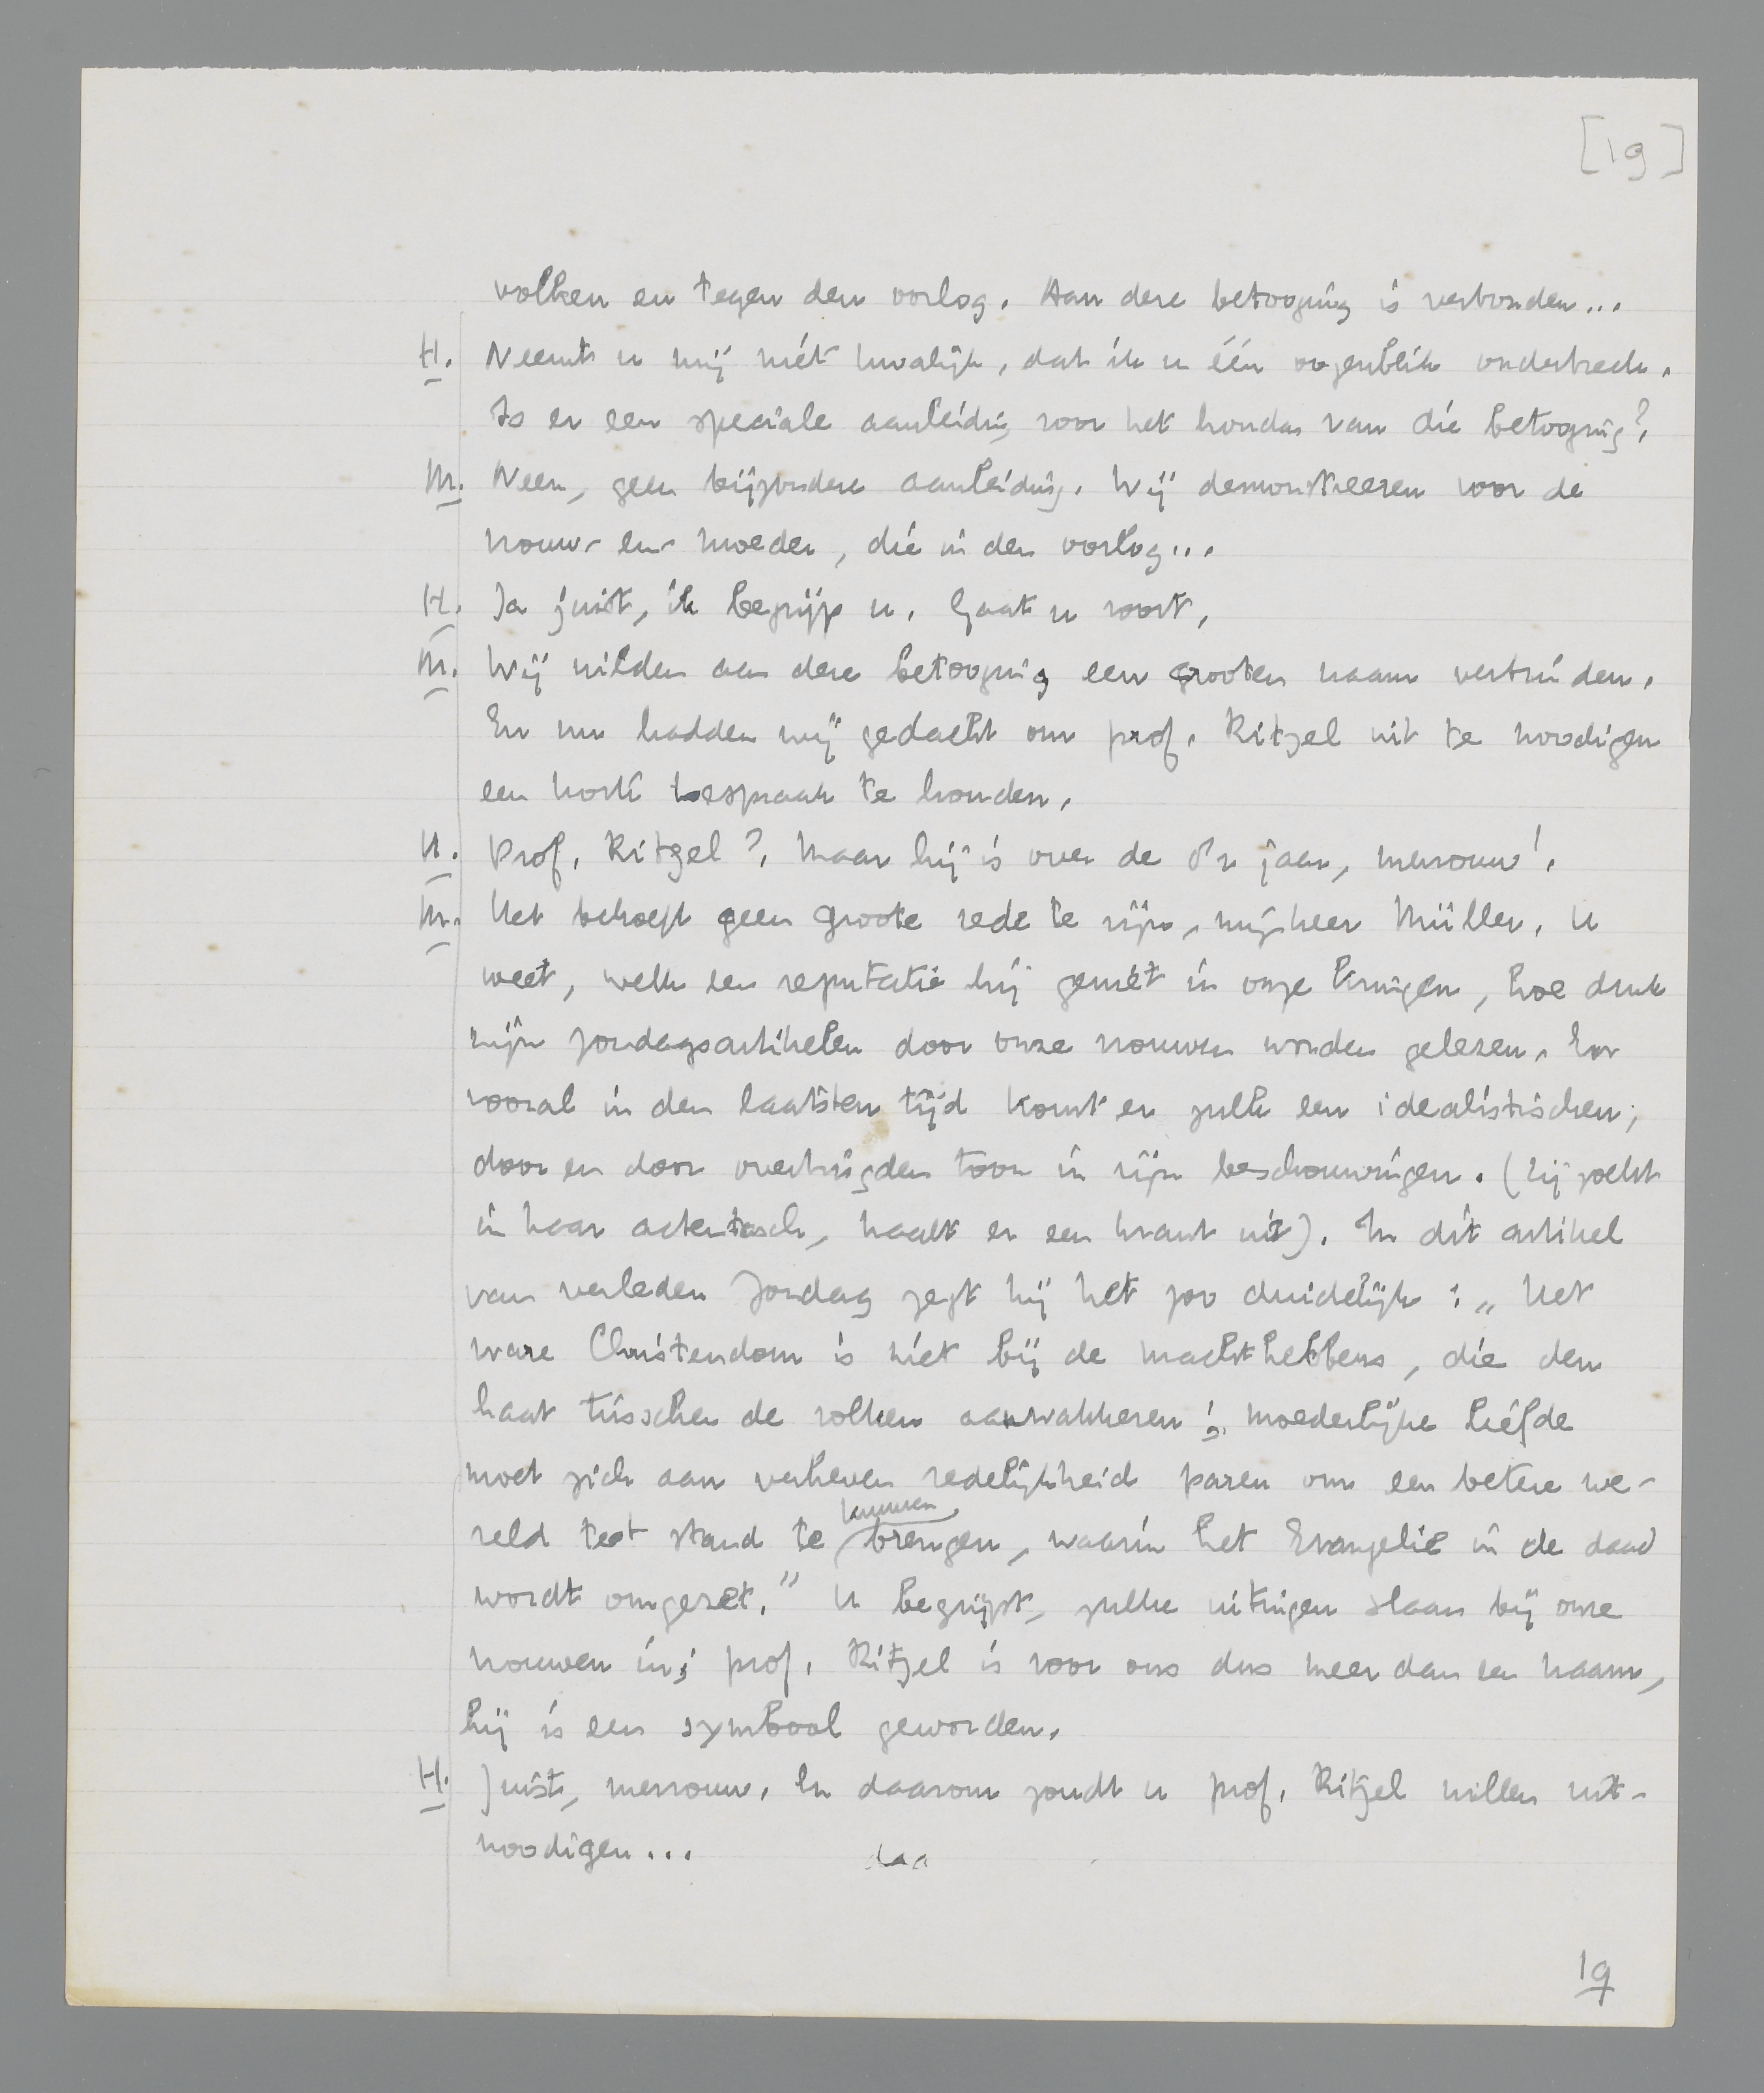 [19]
volken en tegen den oorlog. Aan deze betooging is verbonden...
H. Neemt u mij niet kwalijk, dat ik u één oogenblik onderbreek.
Is er een speciale aanleiding voor het houden van die betooging?
M. Neen, geen bijzondere aanleiding. Wij demonstreeren voor de
vrouw en moeder, die in den oorlog...
H. Ja juist, ik begrijp u. Gaat u voort.
M. Wij wilden aan deze betooging een grooten naam verbinden.
En nu hadden wij gedacht om prof. Ritzel uit te noodigen
een korte toespraak te houden.
H. Prof. Ritzel? Maar hij is over de jaar, mevrouw!
M. Het behoeft geen groote rede te zijn, mijnheer Müller. U
weet, welk een reputatie hij geniet in onze kringen, hoe druk
zijn zondagsartikelen door onze vrouwen worden gelezen. En
vooral in den laatsten tijd komt er zulk een idealistischen,
door en door overtuigden toon in zijn beschouwingen. (Zij zoekt
in haar actentasch, haalt er een krant uit). In dit artikel
van verleden Zondag zegt hij het zoo duidelijk: „Het
ware Christendom is niet bij de machthebbers, die den
haat tusschen de volken aanwakkeren; moederlijke liefde
moet zich aan verheven redelijkheid paren om een betere we-
reld tot stand te kunnen brengen, waarin het Evangelie in de daad
wordt omgezet." U begrijpt, zulke uitingen slaan bij onze
vrouwen in; prof. Ritzel is voor ons dus meer dan een naam,
hij is een symbool geworden.
H. Juist, mevrouw. En daarom zoudt u prof. Ritzel willen uit-
noodigen... daa
19